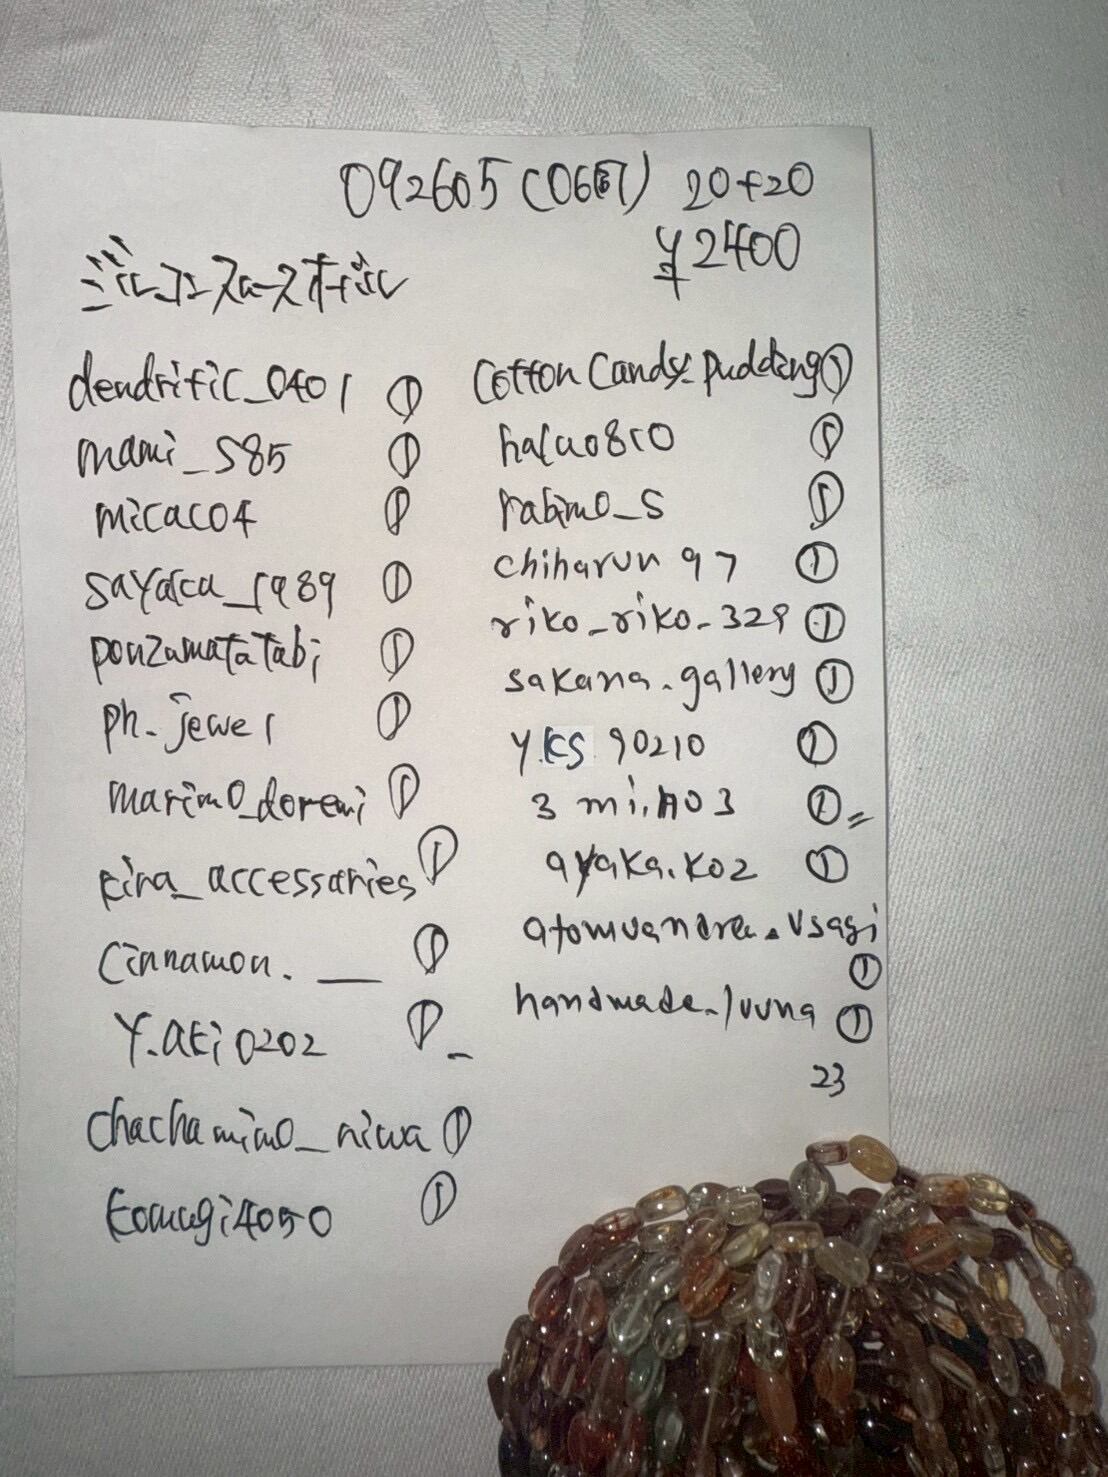 092605 (0667) 20+20
¥2400
ジルコンスロースオーバル
dendritic_0401 ①
mami_s85 ①
micaco4 ①
sayaka_1989 ①
ponzumatatabi ①
ph_jewel ①
marimo_doremi ①
kira_accessories ①
cinnamon.___ ①
y.aki0202 ①
chachamimo_niwa ①
komugi4050 ①
Cotton Candy_pudding ①
haluo810 ①
rabimo_s ①
chiharun97 ①
riko_riko_329 ①
sakana.gallery ①
y.ks.90210 ①
3mi.h03 ①
ayaka.ko2 ①
atomuandrea.usagi
①
handmade_luuna ①
23